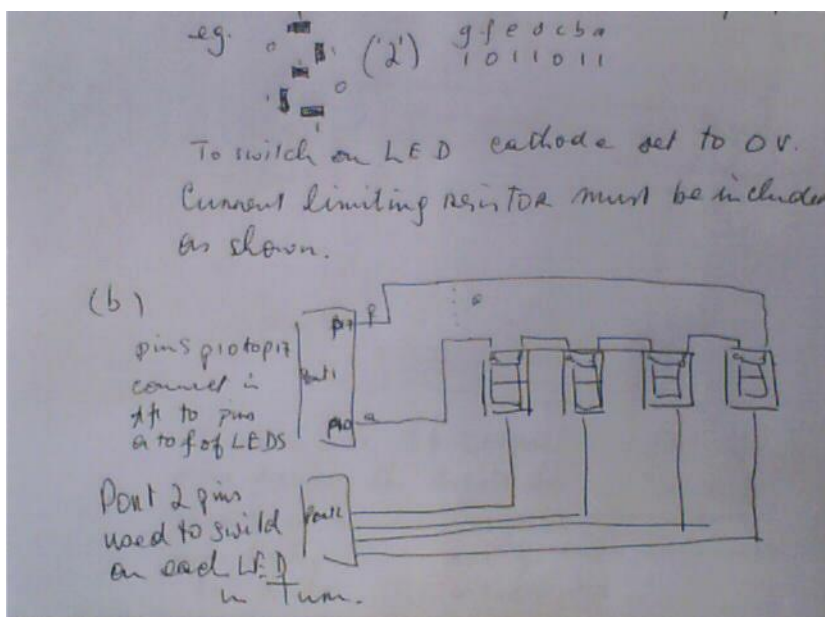 eg.
('2') g f e d c b a
1 0 1 1 0 1 1
To switch on LED cathode set to 0v.
Current limiting resistor must be included
as shown.
(b)
pins p10 to p17
connect in
to pins
a to f of LEDS
p17
Port1
p10 a
Port 2 pins
used to switch
on each LED
in Turn.
Port2